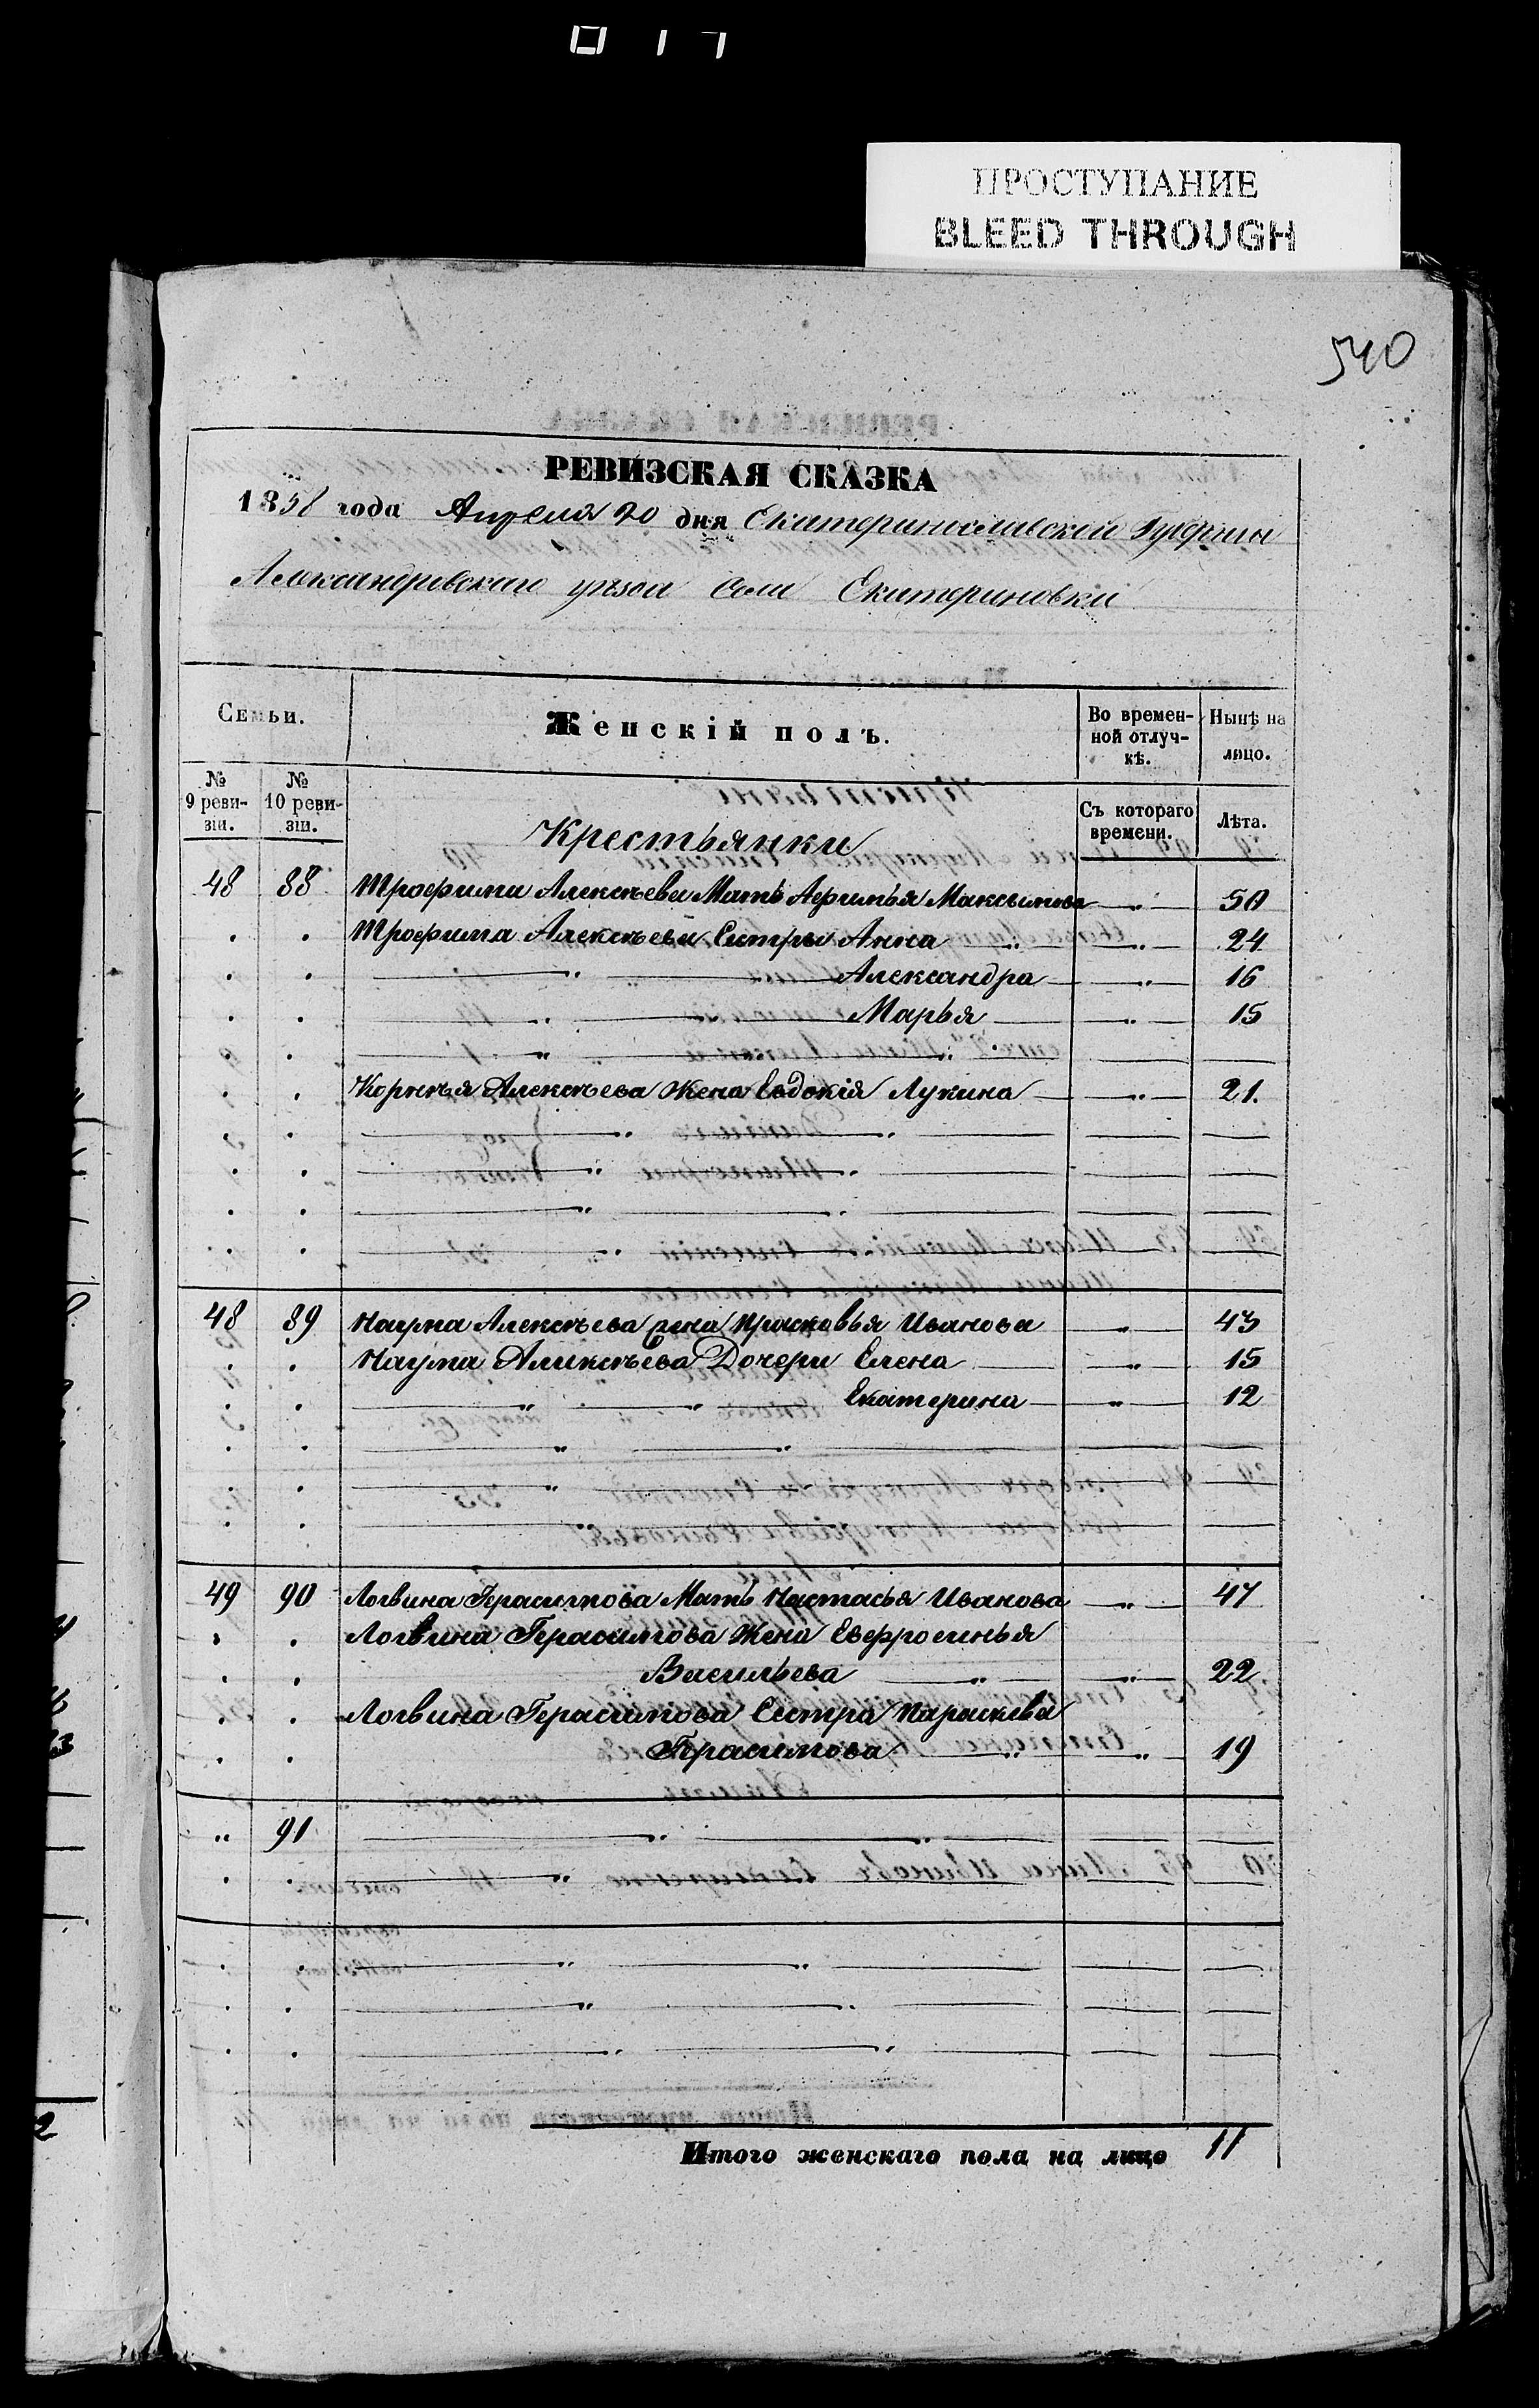 ПРОСТУПАНИЕ
BLEED THROUGH
540
РЕВИЗСКАЯ СКАЗКА
1858 года Апреля 20 дня Екатеринославской Губернии
Александровскаго уѣзда села Екатериновки
Семьи. Женскій полъ. Во временной отлучкѣ. Нынѣ на лицо.
№ 9 ревизіи. № 10 ревизіи. Съ котораго времени. Лѣта.
Крестьянки
48 88 Трофима Алексѣева Мать Афимья Максимова " 50
Трофима Алексѣева Сестры Анна " " 24
" Александра " 16
" Марья " 15
Корнѣя Алексѣева Жена Евдокія Лукина " 21.
48 89 Наума Алексѣева Жена Прасковья Иванова " 43
Наума Алексѣева Дочери Елена " 15
" " Екатерина " 12
49 90 Логвина Герасимова Мать Настасья Иванова " 47
Логвина Герасимова Жена Евфросинья
Васильева " " 22
Логвина Герасимова Сестра Параскева
Герасимова " " 19
" 91 " "
Итого женскаго пола на лицо 11